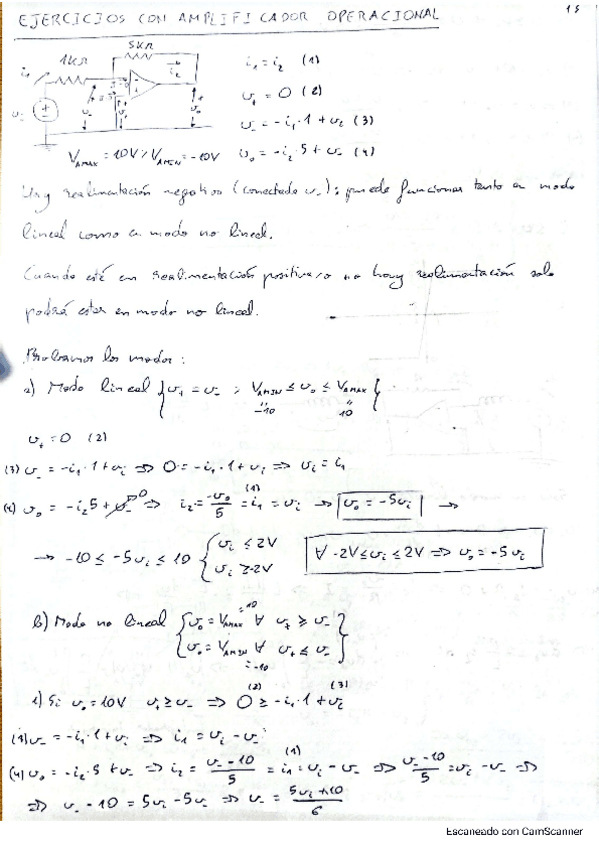 EJERCICIOS CON AMPLIFICADOR OPERACIONAL
5kΩ
1kΩ
i₁ = i₂ (1)
v₊ = 0 (2)
v₋ = -i₁·1 + vᵢ (3)
V_AMAX = 10V, V_AMIN = -10V v₀ = -i₂·5 + v₋ (4)
Hay realimentación negativa (conectado v₋): puede funcionar tanto en modo
lineal como en modo no lineal.
Cuando esté en realimentación positiva o no hay realimentación solo
podrá estar en modo no lineal.
Probamos los modos:
a) Modo lineal { v₊ = v₋ ; V_AMIN ≤ v₀ ≤ V_AMAX }
-10 10
v₊ = 0 (2)
(3) v₋ = -i₁·1 + vᵢ ⇒ 0 = -i₁·1 + vᵢ ⇒ vᵢ = i₁
(4) v₀ = -i₂5 + v₋ ⇒ i₂ = -v₀/5 = i₁ = vᵢ → v₀ = -5vᵢ →
→ -10 ≤ -5vᵢ ≤ 10 { vᵢ ≤ 2V
vᵢ ≥ -2V
∀ -2V ≤ vᵢ ≤ 2V ⇒ v₀ = -5vᵢ
b) Modo no lineal { v₀ = V_AMAX = 10 ∀ v₊ ≥ v₋
v₀ = V_AMIN ∀ v₊ ≤ v₋ }
= -10
1) Si v₀ = 10V v₊ ≥ v₋ ⇒ 0 ≥ -i₁·1 + vᵢ
(2) (3)
(3) v₋ = -i₁·1 + vᵢ ⇒ i₁ = vᵢ - v₋
(4) v₀ = -i₂·5 + v₋ ⇒ i₂ = (v₋ - 10)/5 = i₁ = vᵢ - v₋ ⇒ (v₋ - 10)/5 = vᵢ - v₋ ⇒
⇒ v₋ - 10 = 5vᵢ - 5v₋ ⇒ v₋ = (5vᵢ + 10)/6
Escaneado con CamScanner